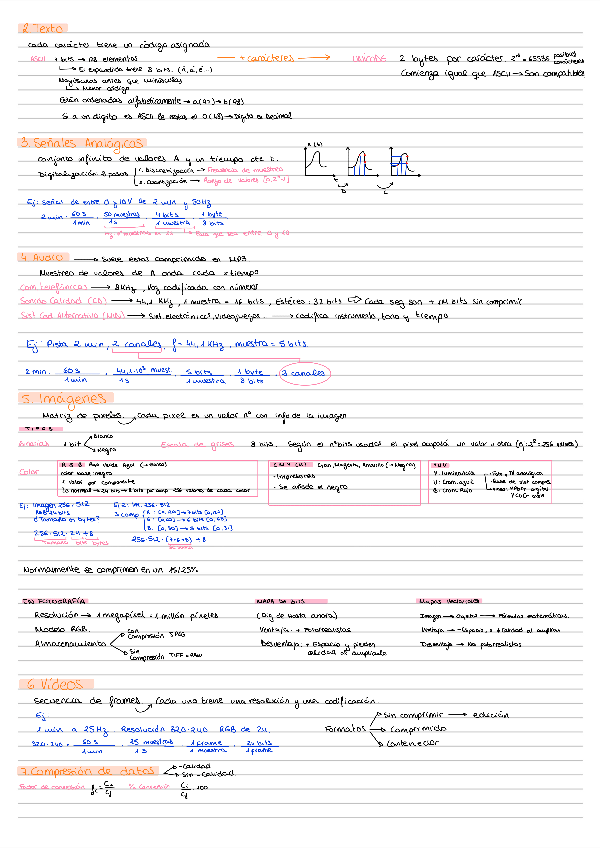 2. Texto
cada carácter tiene un código asignado
ASCII 7 bits → 128 elementos — + carácteres → UNICODE 2 bytes por carácter 2¹⁶ = 65536 posibles carácteres
E. expandida tiene 8 bits. (ñ, á, ë...) Comienza igual que ASCII → Son compatibles
Mayúsculas antes que minúsculas
Menor código
Están ordenadas alfabéticamente → a(97) → b(98)
Si a un dígito en ASCII le restas el 0(48) → Dígito en Decimal
3. Señales Analógicas
Conjunto infinito de valores A y un tiempo cte t.
Digitalización: 2 pasos
1. Discretización → Frecuencia de muestreo
2. Cuantización → Rango de valores
Ej: Señal de entre 0 y 10V de 2 min y 50Hz
2 min · 60 s / 1 min · 50 muestras / 1s · 4 bits / 1 muestra · 1 byte / 8 bits
4. Audio → Suele estar comprimido en MP3
Muestreo de valores de A onda cada x tiempo
Com. telefónicas → 8KHz, Voz codificada con números
Sonido Calidad (CD) → 44,1 KHz, 1 muestra = 16 bits, Estéreo: 32 bits ⇒ Cada seg son + 1M bits sin comprimir
Sist. Cod Alternativo (MIDI) → Sint. electrónicos, videojuegos. → codifica instrumento, tono y tiempo
Ej: Pista 2 min, 2 canales, f = 44,1 KHz, muestra = 5 bits.
2 min · 60 s / 1 min · 44,1·10³ muest. / 1s · 5 bits / 1 muestra · 1 byte / 8 bits · 2 canales
5. Imágenes
Matriz de píxeles. Cada pixel es un valor nº con info de la imagen
TIPOS
Binarias 1 bit Blanco Negro Escala de grises 8 bits. Según el nº bits usados el píxel ocupará un valor u otro
Color
RGB Rojo Verde Azul
1 valor por componente
CMY CMYK Cian, Magenta, Amarillo (+Negro)
· Impresoras
· Se añade el negro
YUV
Y: luminancia
U: Crom. azul
V: Crom. Rojo
Ej: Imagen 256·512
RGB 24 bits
¿Tamaño en bytes?
256·512·24 ÷ 8
Tamaño bits bytes
3 comp
Normalmente se comprimen en un 15/25%
EN FOTOGRAFÍA
Resolución → 1 megapíxel = 1 millón píxeles
Modelo RGB
Almacenamiento
Con compresión JPG
Sin compresión TIFF o RAW
MAPA DE BITS
(Dig de hasta ahora)
Ventaja: + Fotorrealistas
Desventaja: + Espacio y pierden calidad al ampliarla
Mapas Vectoriales
Imagen → Objetos → Fórmulas matemáticas.
Ventaja → - Espacio, = calidad al ampliar
Desventaja → No fotorealistas
6. Vídeos
Secuencia de frames. Cada uno tiene una resolución y una codificación
Ej
1 min a 25Hz. Resolución 320·240 RGB de 24.
320·240 · 60 s / 1 min · 25 muestras / 1s · 1 frame / 1 muestra · 24 bits / 1 frame
Formatos
Sin comprimir → edición
Comprimido
Contenedor
7. Compresión de datos
- Calidad
Sin - calidad
Factor de compresión fc = Ci / Cf % Conversión Ci / Cf · 100